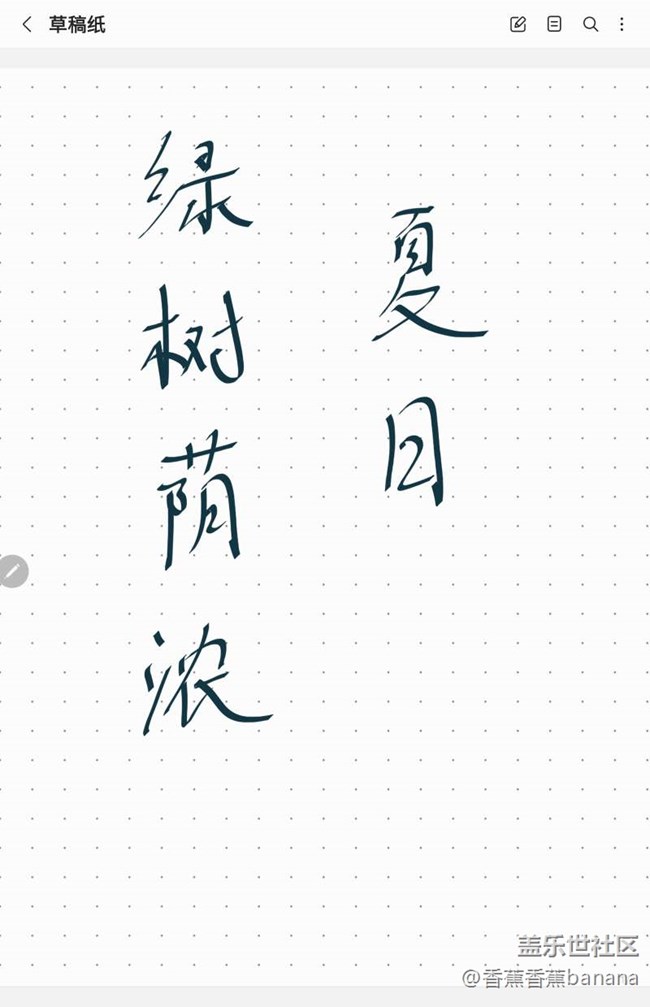 草稿纸
夏目
绿树荫浓
盖乐世社区
@香蕉香蕉banana